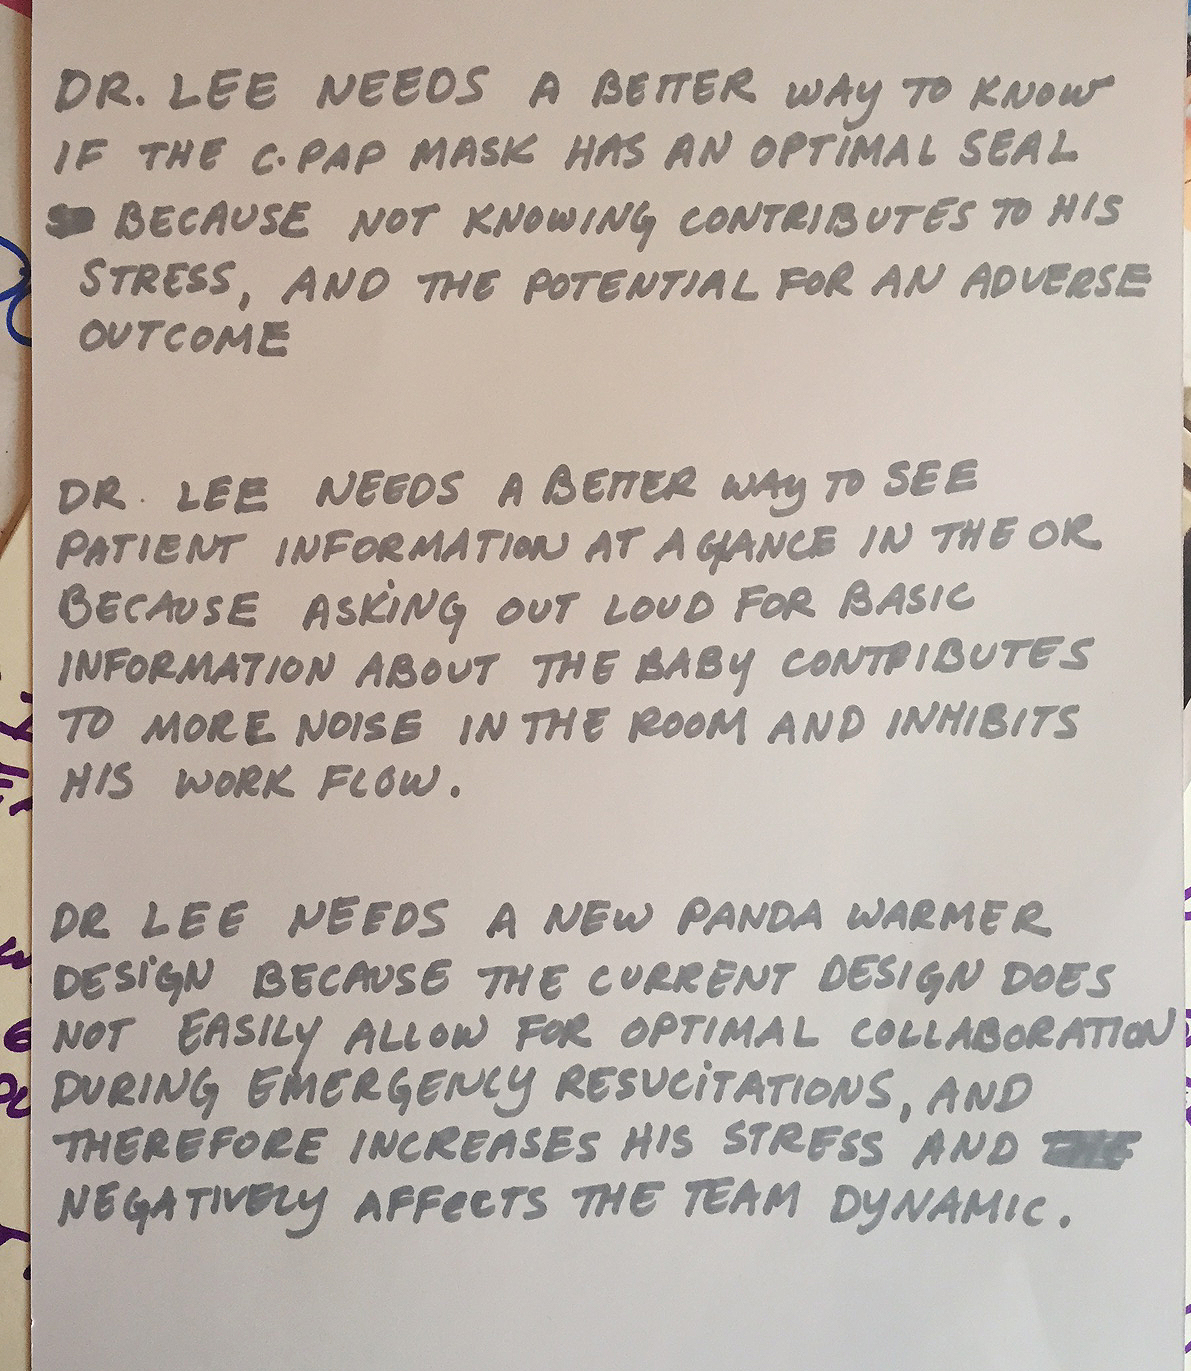 DR. LEE NEEDS A BETTER WAY TO KNOW
IF THE C.PAP MASK HAS AN OPTIMAL SEAL
BECAUSE NOT KNOWING CONTRIBUTES TO HIS
STRESS, AND THE POTENTIAL FOR AN ADVERSE
OUTCOME
DR. LEE NEEDS A BETTER WAY TO SEE
PATIENT INFORMATION AT A GLANCE IN THE OR
BECAUSE ASKING OUT LOUD FOR BASIC
INFORMATION ABOUT THE BABY CONTRIBUTES
TO MORE NOISE IN THE ROOM AND INHIBITS
HIS WORK FLOW.
DR LEE NEEDS A NEW PANDA WARMER
DESIGN BECAUSE THE CURRENT DESIGN DOES
NOT EASILY ALLOW FOR OPTIMAL COLLABORATION
DURING EMERGENCY RESUCITATIONS, AND
THEREFORE INCREASES HIS STRESS AND
NEGATIVELY AFFECTS THE TEAM DYNAMIC.